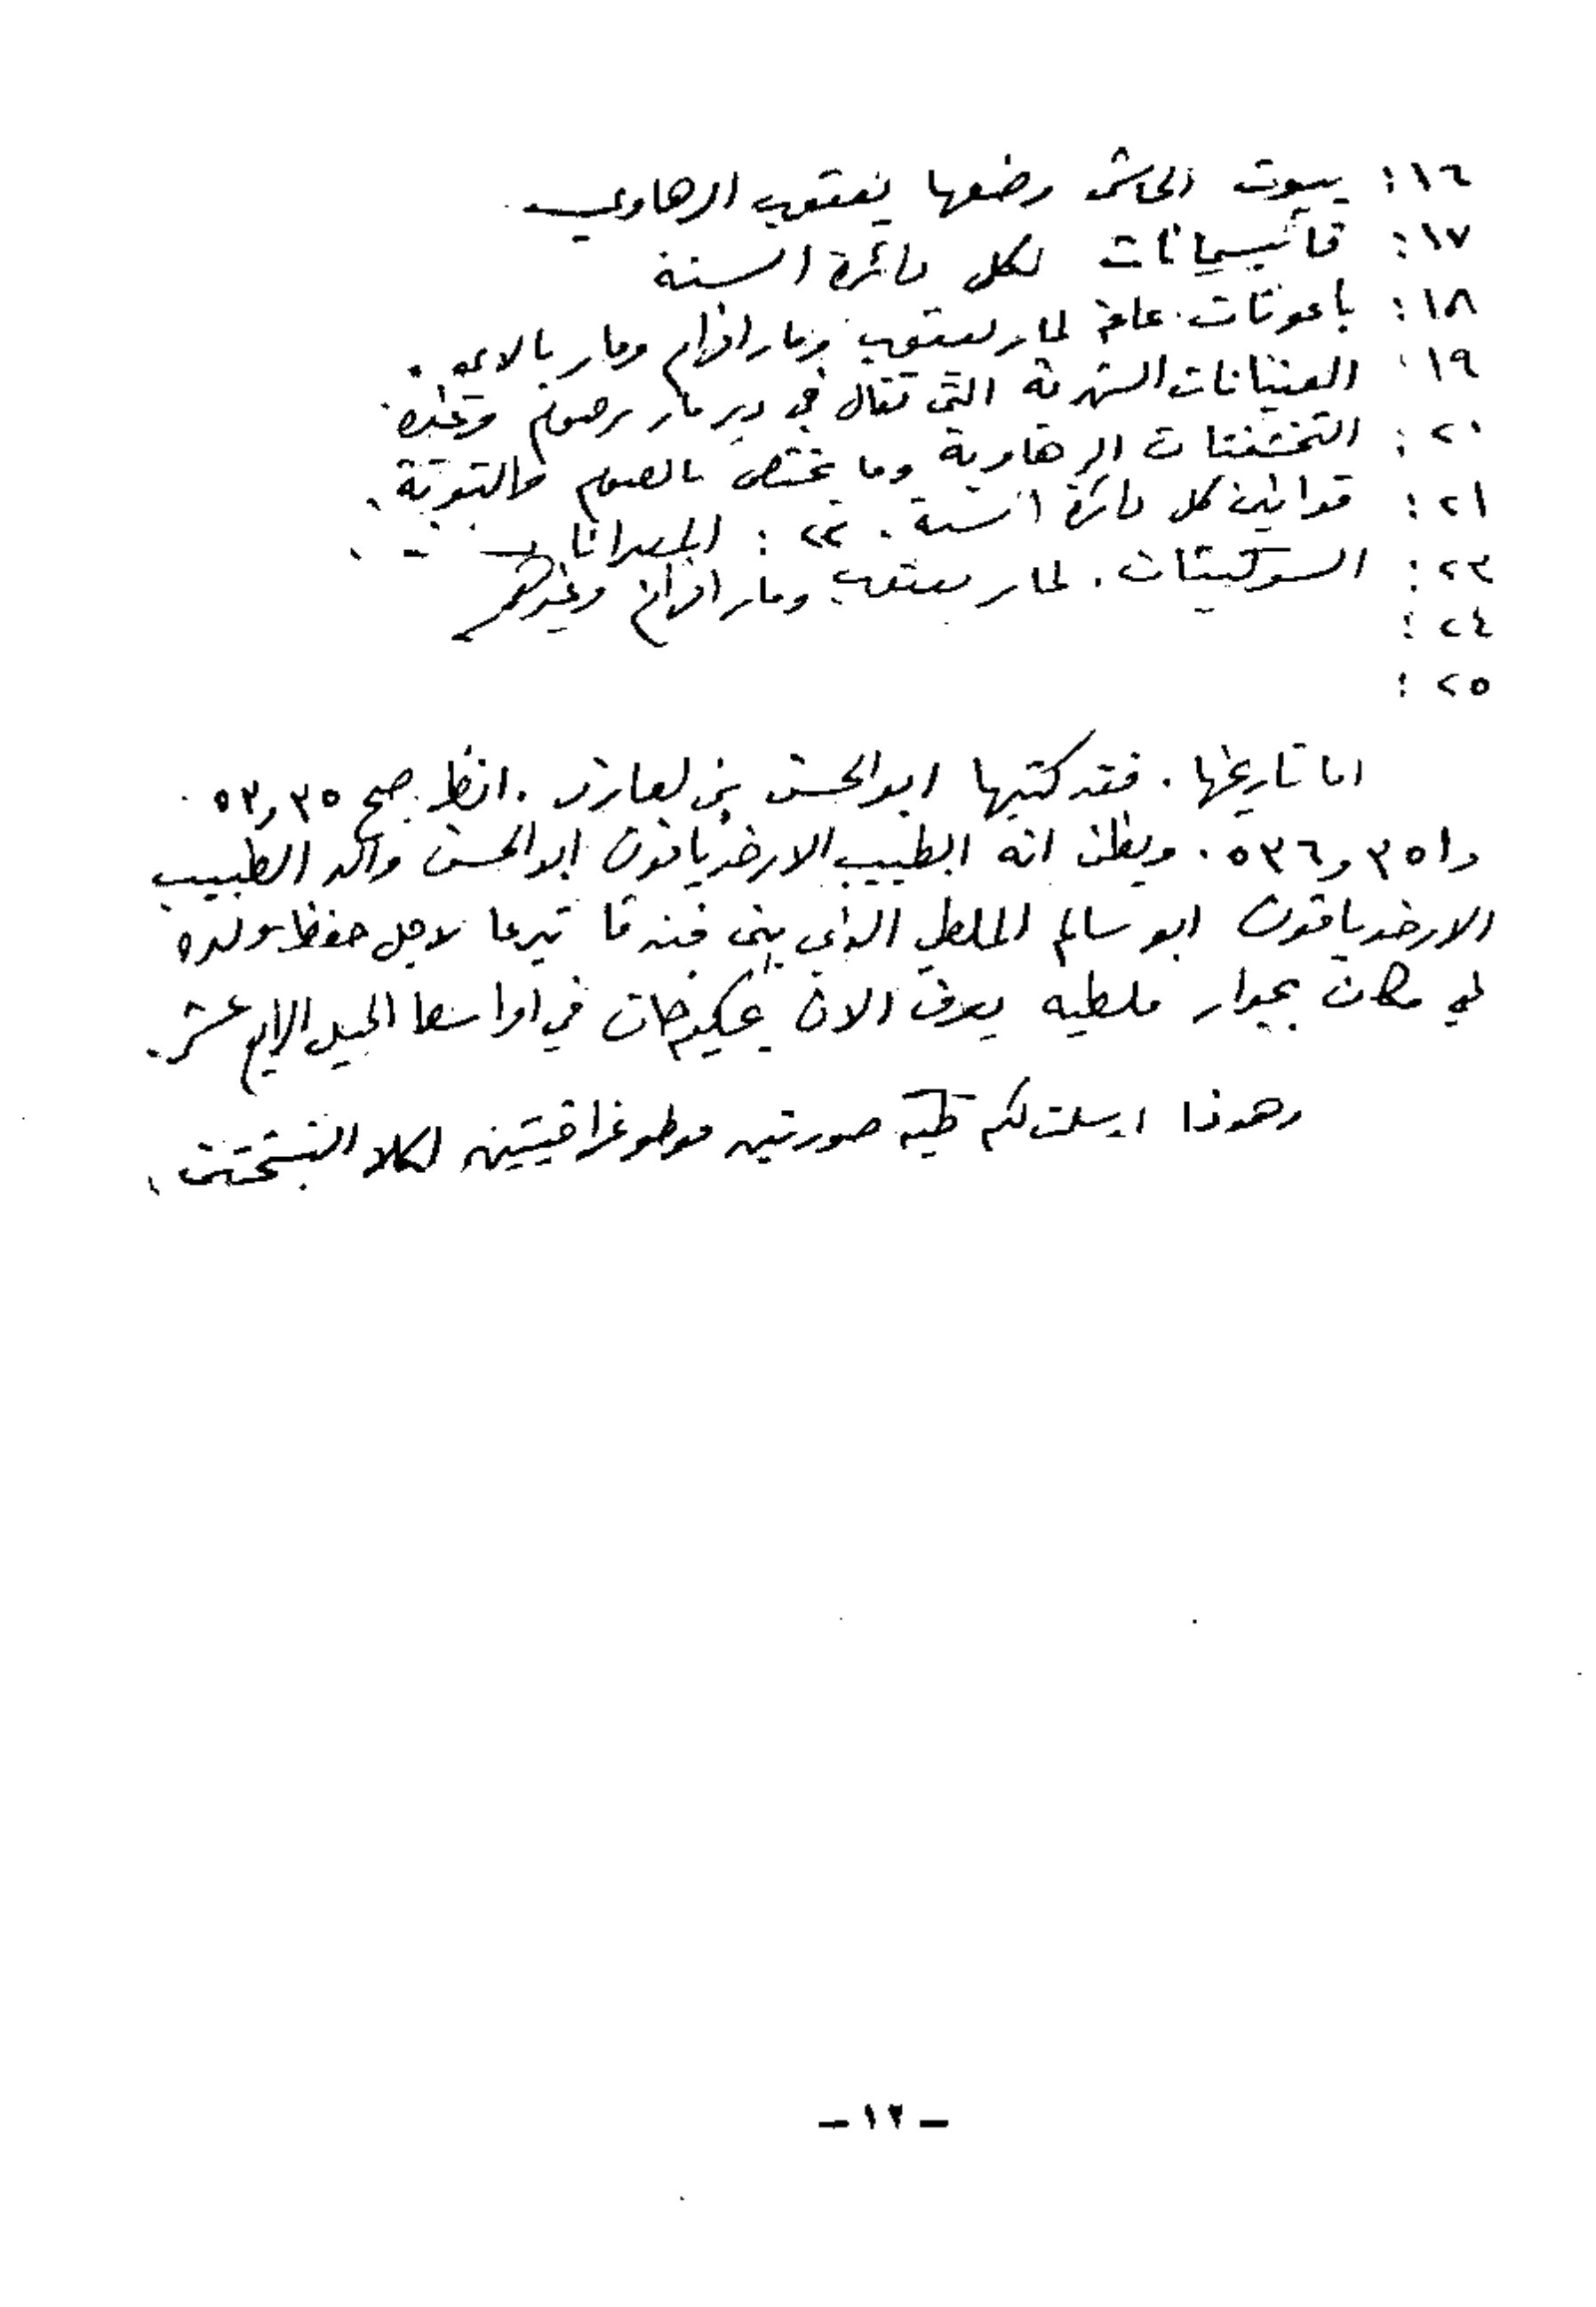 ١٦: بيوت الحاش وضعها يعقوب الرهاوي
١٧: قاتيسمانات لكل دائرة السنة
١٨: باعوثات عامة لمار يعقوب ومار افرام ومار بالاي.
١٩: العنيانات الشهرية التي تقال في دير مار برصوم وغيره.
٢٠: التخشفتات الرهاوية وما يختص بالصوم والتوبة.
٢١: قوانين كل دائرة السنة. ٢٢:
٢٣: السوكيتات. لمار يعقوب ومار افرام وغيرهم
٢٤:
٢٥:
اما تاريخها. فقد كتبها ابو الحسن بن لعازر. انظر صح ٣٥ و ٥٣
و ٣٥١ و ٥٣٦. ويظن انه الطبيب الارخدياقون ابو الحسن والد الطبيب
الارخدياقون ابو سالم الملطي الذي بنى فندقا تبرعا لاجل حفظ ولده
في مكان بجوار ملطيه يعرف الان بحكيم خان في اواسط الجيل الرابع عشر.
وهوذا ارسلت لكم طيه صورتين فوطوغرافيتين لكلا النسختين.
-١٢-